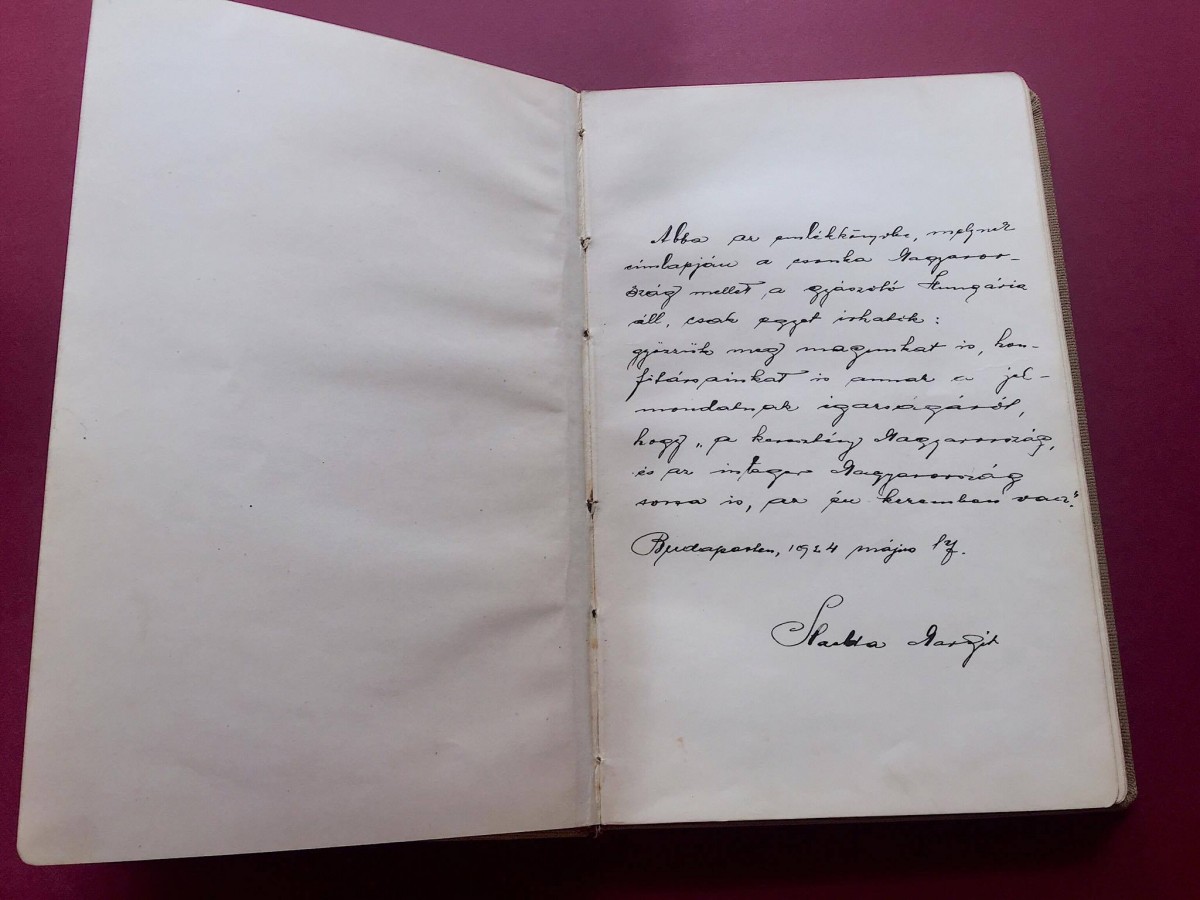 Abba az emlékkönyvbe, melynek
címlapján a csonka Magyaror-
szág mellet, a gyászoló Hungária
áll, csak egyet irhatok:
győzzük meg magunkat is, hon-
fitársainkat is annak a jel-
mondatnak igazságáról,
hogy „a keresztény Magyarország,
és az integer Magyarország
sorsa is, az én kezemben van."
Budapesten, 1924 május 17.
Slachta Margit